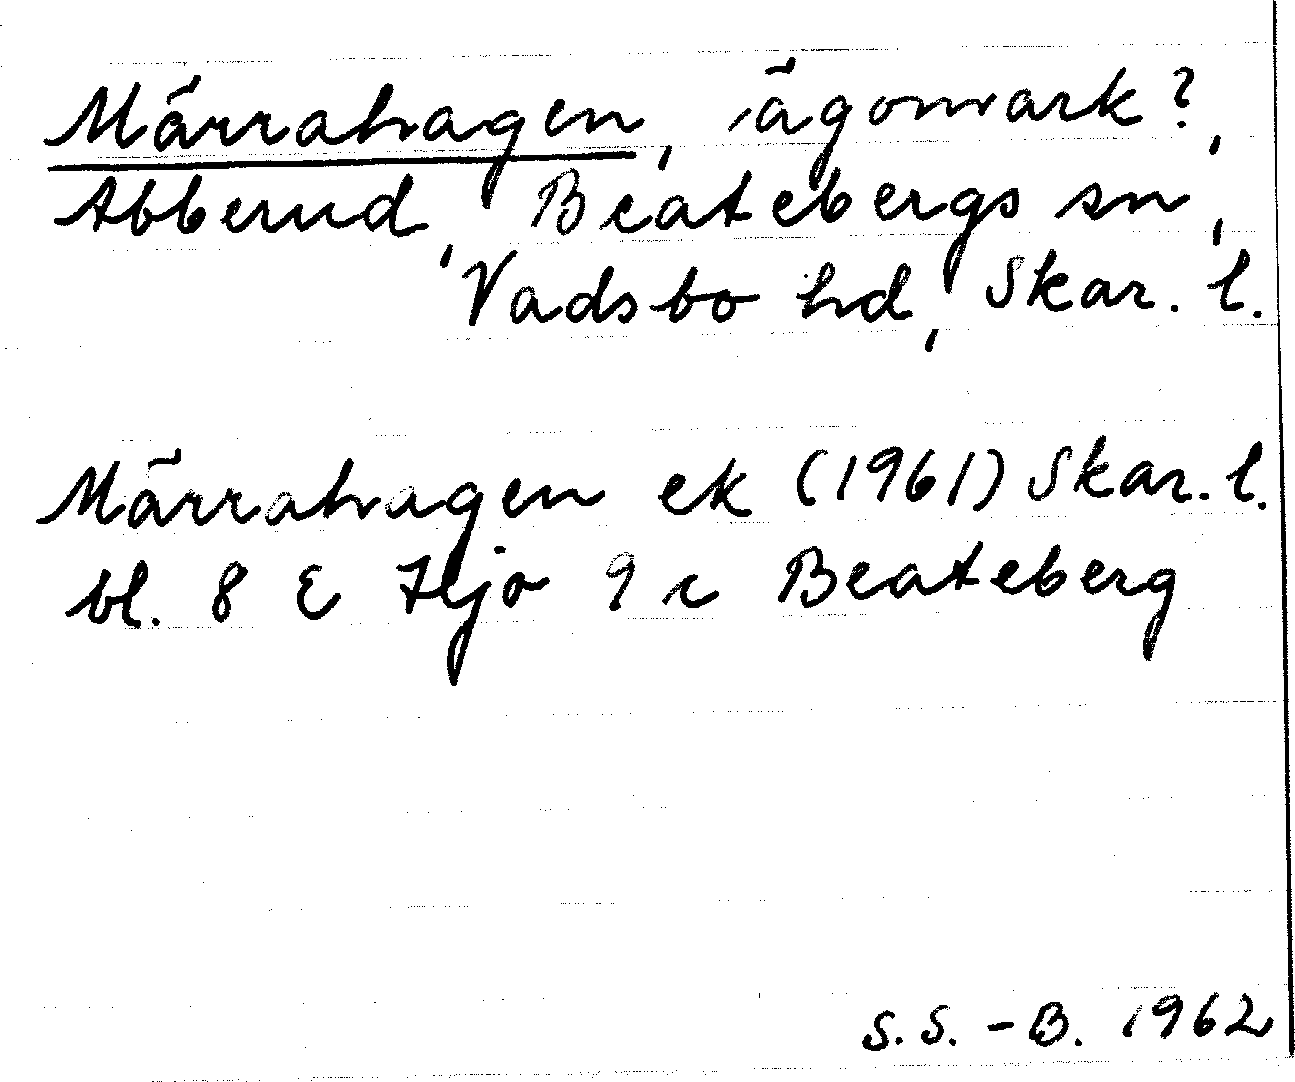 Märrahagen, ägomark?,
Abberud, Beatebergs sn,
Vadsbo hd, Skar. l.
Märrahagen ek (1961) Skar. l.
bl. 8 E Hjo 9 c Beateberg
S.S.-B. 1962